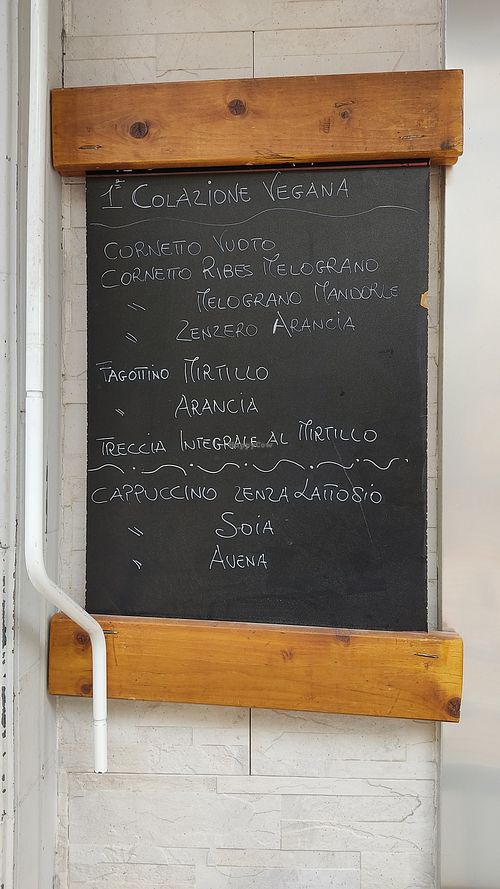 1ª COLAZIONE VEGANA
CORNETTO VUOTO
CORNETTO RIBES MELOGRANO
〃 MELOGRANO MANDORLE
〃 ZENZERO ARANCIA
FAGOTTINO MIRTILLO
〃 ARANCIA
TRECCIA INTEGRALE AL MIRTILLO
CAPPUCCINO ZENZA LATTOSIO
〃 SOIA
〃 AVENA